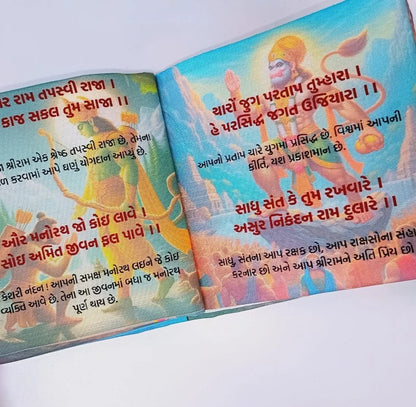 રામ તપસ્વી રાજા ।
કાજ સકલ તુમ સાજા ।।
શ્રીરામ એક શ્રેષ્ઠ તપસ્વી રાજા છે, તેમના
કરવામાં આપે ઘણું યોગદાન આપ્યું છે.
ઓર મનોરથ જો કોઇ લાવે ।
સોઇ અમિત જીવન ફલ પાવે ।।
કેશરી નંદન ! આપની સમક્ષ મનોરથ લઇને જે કોઇ
વ્યક્તિ આવે છે. તેના આ જીવનમાં બધા જ મનોરથ
પૂર્ણ થાય છે.
ચારોં જુગ પરતાપ તુમ્હારા ।
હે પરસિદ્ધ જગત ઉજિયારા ।।
આપનો પ્રતાપ ચારે યુગમાં પ્રસિદ્ધ છે. વિશ્વમાં આપની
કીર્તિ, યશ પ્રકાશમાન છે.
સાધુ સંત કે તુમ રખવારે ।
અસુર નિકંદન રામ દુલારે ।।
સાધુ, સંતના આપ રક્ષક છો, આપ રાક્ષસોના સંહા
કરનાર છો અને આપ શ્રીરામને અતિ પ્રિય છો